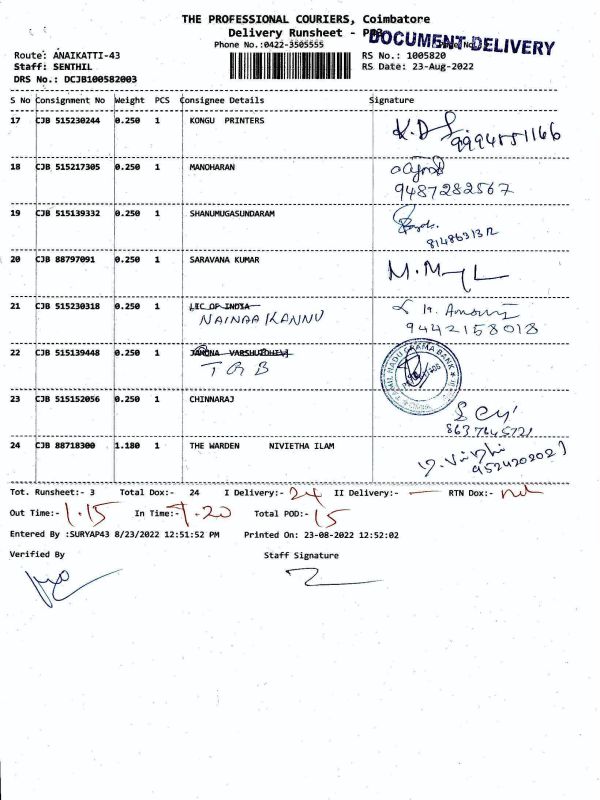 THE PROFESSIONAL COURIERS, Coimbatore
Delivery Runsheet -
DOCUMENT DELIVERY
Phone No.:0422-3505555
Route: ANAIKATTI-43
RS No.: 1005820
Staff: SENTHIL
RS Date: 23-Aug-2022
DRS No.: DCJB100582003
S No Consignment No Weight PCS Consignee Details Signature
17 CJB 515230244 0.250 1 KONGU PRINTERS
18 CJB 515217305 0.250 1 MANOHARAN
9487282567
19 CJB 515139332 0.250 1 SHANUMUGASUNDARAM
20 CJB 88797091 0.250 1 SARAVANA KUMAR
21 CJB 515230318 0.250 1 LIC OF INDIA
NAINAA KANNU
9442158018
22 CJB 515139448 0.250 1
TGB
23 CJB 515152056 0.250 1 CHINNARAJ
8637645721
24 CJB 88718300 1.180 1 THE WARDEN NIVIETHA ILAM
Tot. Runsheet:- 3 Total Dox:- 24 I Delivery:- 24 II Delivery:- — RTN Dox:- nil
Out Time:- 1.15 In Time:- 7.20 Total POD:- 15
Entered By :SURYAP43 8/23/2022 12:51:52 PM Printed On: 23-08-2022 12:52:02
Verified By Staff Signature